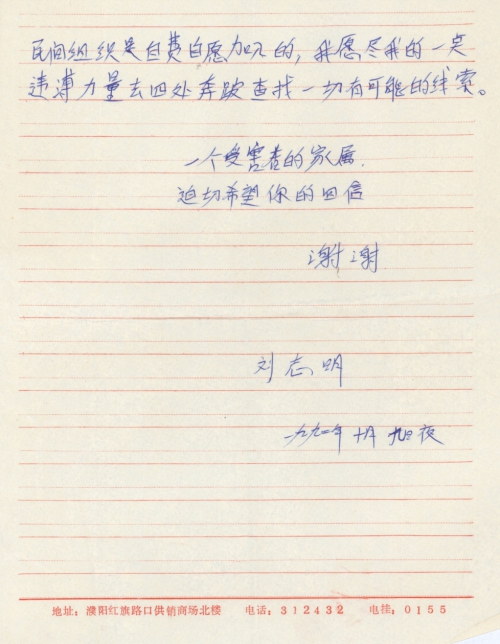 民间组织是自费自愿加入的，我愿尽我的一奌
违薄力量去四处奔跑查找一切有可能的线索。
一个受害者的家属.
迫切希望你的回信
谢谢
刘志明
一九九一年 十月 九日夜
地址：濮阳红旗路口供销商场北楼 电话：312432 电挂：0155